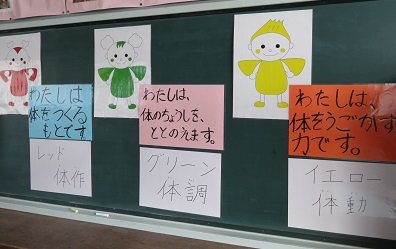 わたしは
体をつくる
もとです
レッド
体作
わたしは、
体のちょうしを、
ととのえます。
グリーン
体調
わたしは、
体をうごかす
力です。
イエロー
体動